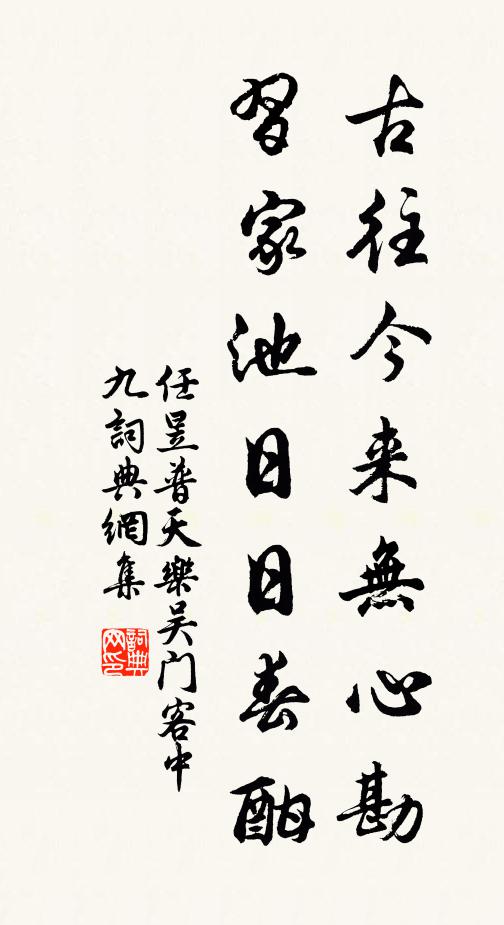 古往今来無心勘
習家池日日春酣
任昱普天樂吴门客中
九詞典網集
詞典
网印